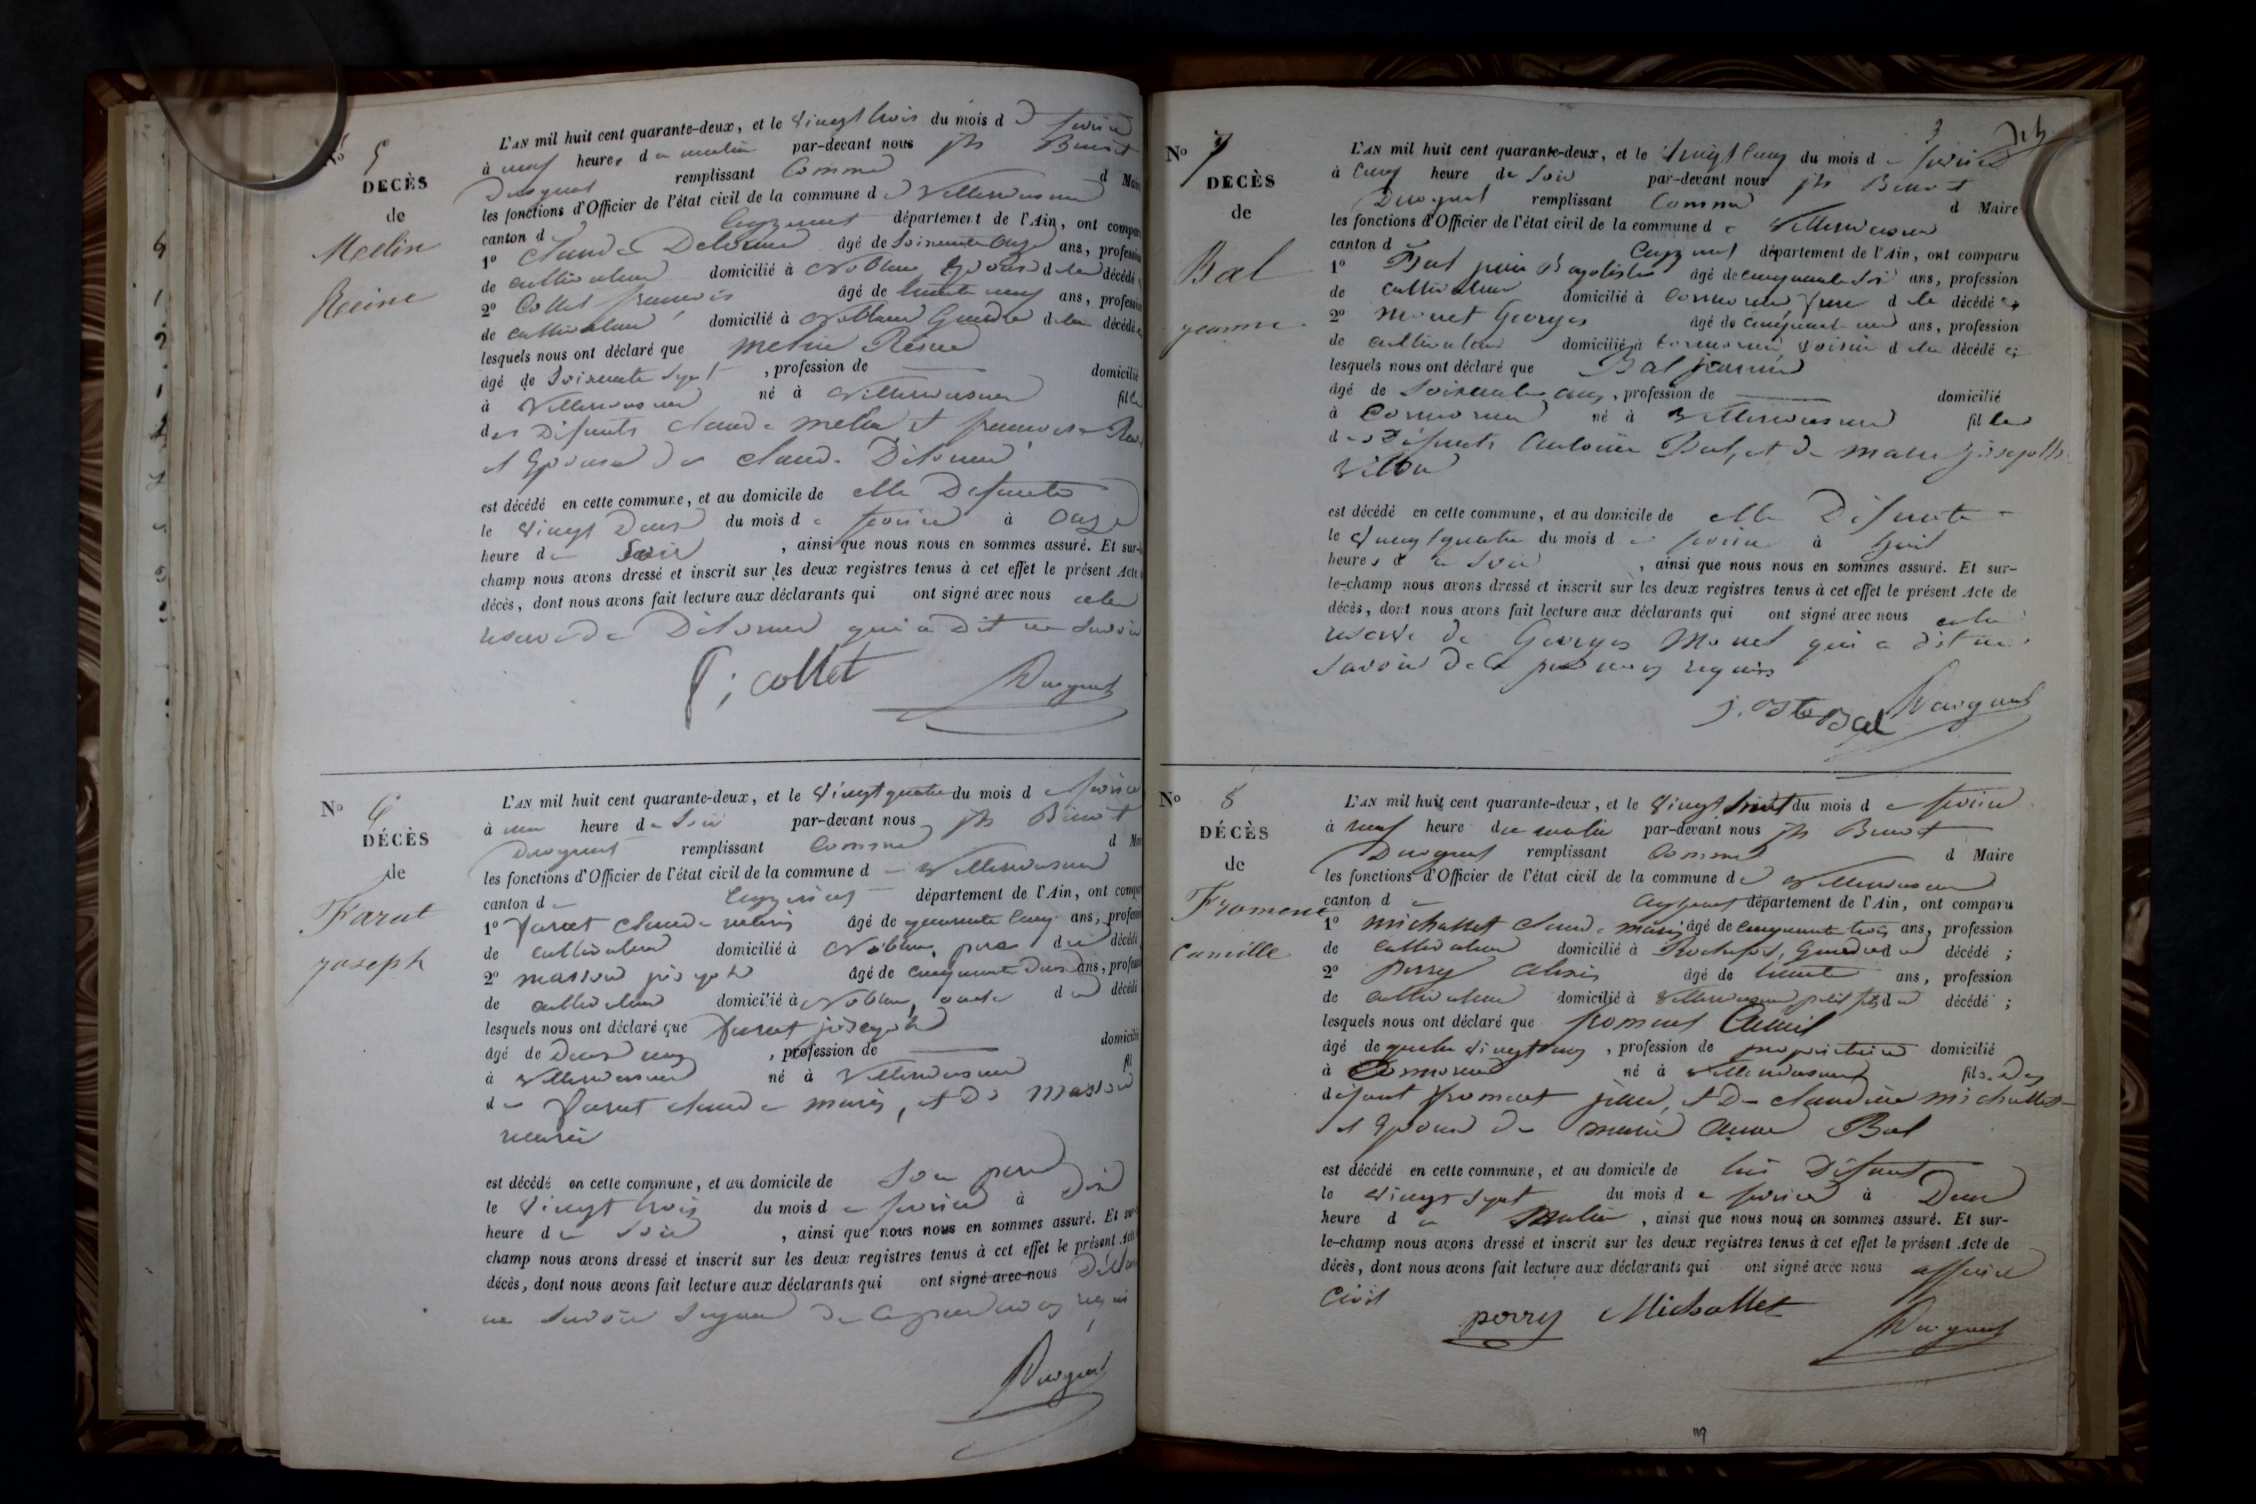 N° 5
DÉCÈS
de
Melin
Reine
L'AN mil huit cent quarante-deux, et le vingt trois du mois de février
à neuf heures du matin par-devant nous jh Benoit
remplissant comme d Maire
les fonctions d'Officier de l'état civil de la commune de Villereversure
canton de Ceyzeriat département de l'Ain, ont comparu
1° Claude Delorme âgé de soixante onze ans, profession
de cultivateur domicilié à Noblens, époux de la décédée
2° Collet françois âgé de trente neuf ans, profession
de cultivateur, domicilié à Noblens Gendre de la décédée
lesquels nous ont déclaré que melin Reine
âgé de soixante sept , profession de domicilié
à Villereversure né à Villereversure fille
des défunts claude melin et françoise
et Epouse de claude Delorme
est décédé en cette commune, et au domicile de elle Defunte
le vingt Deux du mois de février à onze
heure du soir , ainsi que nous nous en sommes assuré. Et sur-le
champ nous avons dressé et inscrit sur les deux registres tenus à cet effet le présent Acte
décès, dont nous avons fait lecture aux déclarants qui ont signé avec nous à la
reserve de Delorme qui a dit ne savoir
f; collet
N° 6
DÉCÈS
de
Farat
joseph
L'AN mil huit cent quarante-deux, et le vingt quatre du mois de février
à une heure du soir par-devant nous jh Benoit
remplissant comme d Maire
les fonctions d'Officier de l'état civil de la commune de Villereversure
canton de Ceyzeriat département de l'Ain, ont comparu
1° farat claude marie âgé de quarante cinq ans, profession
de cultivateur domicilié à Noblens, père du décédé
2° masson joseph âgé de cinquante deux ans, profession
de cultivateur domicilié à Noblens, oncle du décédé
lesquels nous ont déclaré que farat joseph
âgé de deux ans , profession de domicilié
à Villereversure né à Villereversure fil
de farat claude marie, et de masson
marie
est décédé en cette commune, et au domicile de son père
le vingt trois du mois de février à dix
heure du soir , ainsi que nous nous en sommes assuré. Et sur
champ nous avons dressé et inscrit sur les deux registres tenus à cet effet le présent Acte
décès, dont nous avons fait lecture aux déclarants qui ont signé avec nous
ne savoir signer de ce par nous requis
3
N° 7
DÉCÈS
de
Bal
jeanne
L'AN mil huit cent quarante-deux, et le vingt cinq du mois de février
à cinq heure du soir par-devant nous jh Benoit
remplissant comme d Maire
les fonctions d'Officier de l'état civil de la commune de Villereversure
canton de Ceyzeriat département de l'Ain, ont comparu
1° Bal jean Baptiste âgé de cinquante six ans, profession
de cultivateur domicilié à Cormoreu, frère de la décédée
2° monet Georges âgé de cinquante un ans, profession
de cultivateur domicilié à cormoreu, voisin de la décédée
lesquels nous ont déclaré que Bal jeanne
âgé de soixante ans, profession de domicilié
à Cormoreu né à Villereversure fille
des défunts Antoine Bal, et de marie josephte
est décédé en cette commune, et au domicile de elle Défunte
le vingt quatre du mois de février à huit
heures du soir , ainsi que nous nous en sommes assuré. Et sur-
le-champ nous avons dressé et inscrit sur les deux registres tenus à cet effet le présent Acte de
décès, dont nous avons fait lecture aux déclarants qui ont signé avec nous à la
reserve de Georges Monet qui a dit ne
savoir de ce par nous requis
j. Bte Bal
N° 8
DÉCÈS
de
Froment
Camille
L'AN mil huit cent quarante-deux, et le vingt huit du mois de février
à neuf heure du matin par-devant nous jh Benoit
remplissant comme d Maire
les fonctions d'Officier de l'état civil de la commune de Villereversure
canton de Ceyzeriat département de l'Ain, ont comparu
1° michallet claude marie âgé de cinquante trois ans, profession
de cultivateur domicilié à Rochefort, Gendre du décédé ;
2° perry Alexis âgé de trente ans, profession
de cultivateur domicilié à Villereversure petit fils du décédé ;
lesquels nous ont déclaré que froment Camil
âgé de quatre vingt ans , profession de propriétaire domicilié
à Cormoreu né à Villereversure fils des
défunt froment jean, et de claudine michallet
et Epoux de marie anne Bal
est décédé en cette commune, et au domicile de lui Défunt
le vingt sept du mois de février à Deux
heure du matin , ainsi que nous nous en sommes assuré. Et sur-
le-champ nous avons dressé et inscrit sur les deux registres tenus à cet effet le présent Acte de
décès, dont nous avons fait lecture aux déclarants qui ont signé avec nous officier
civil
perry Michallet